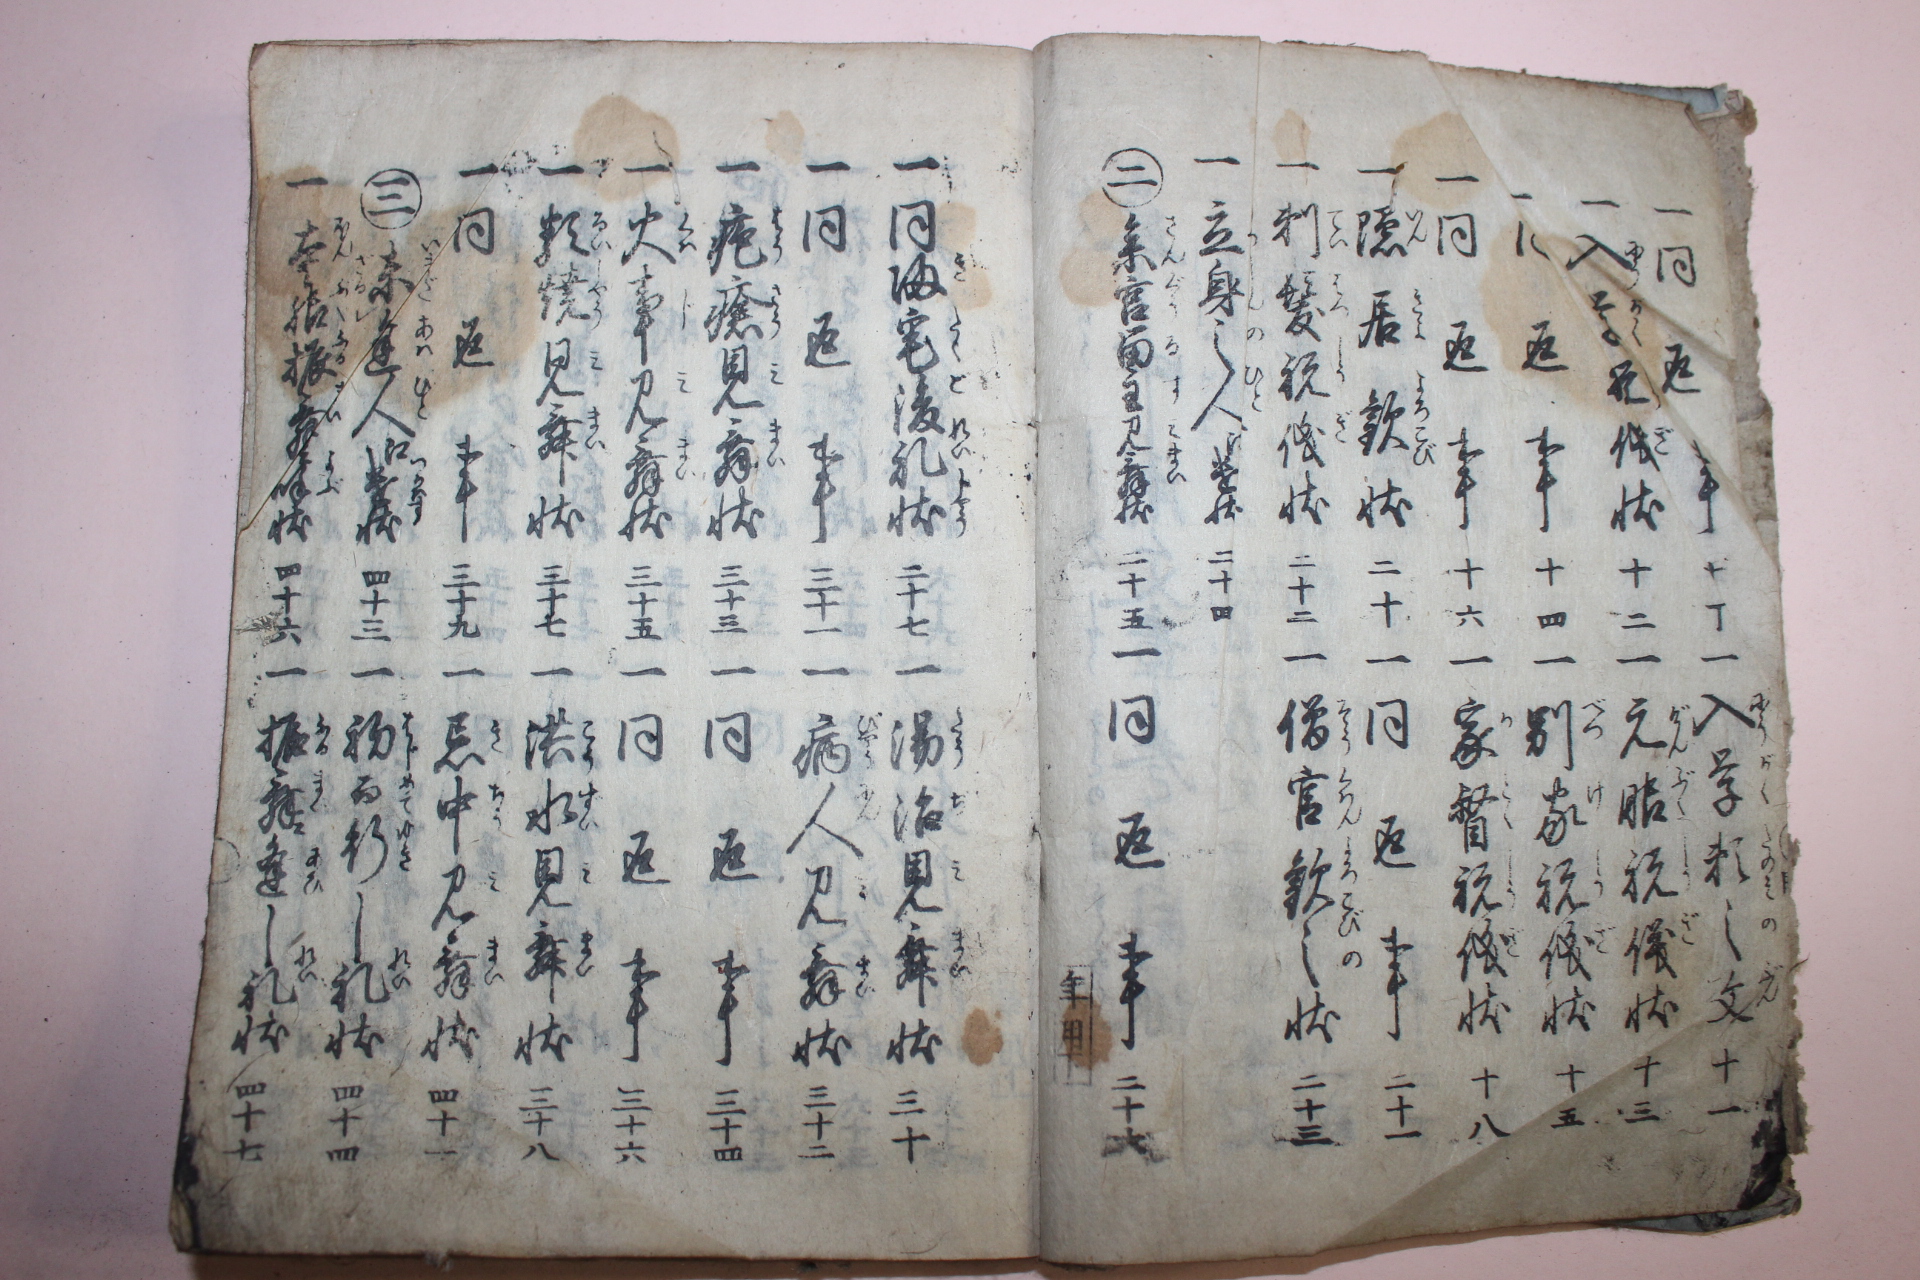 一 同 返事 十丁
一 入学頼之文 十一
一 入学祝儀状 十二
一 元服祝儀状 十三
一 同 返事 十四
一 別家祝儀状 十五
一 同 返事 十六
一 家督祝儀状 十八
一 隠居歓状 二十
一 同 返事 二十一
一 剃髪祝儀状 二十二
一 僧官歓之状 二十三
一 立身之人 状 二十四
㊁ 参宮留主見舞状 二十五
一 同 返事 二十七
年用
一 同 宅後礼状 二十七
一 湯治見舞状 三十
一 同 返事 三十一
一 病人見舞状 三十二
一 疱瘡見舞状 三十三
一 同 返事 三十四
一 火事見舞状 三十五
一 同 返事 三十六
一 類焼見舞状 三十七
一 洪水見舞状 三十八
一 同 返事 三十九
一 忌中見舞状 四十一
㊂ 未逢人 状 四十三
一 初而行し礼状 四十四
一 元服振舞 状 四十六
一 振舞逢し礼状 四十七